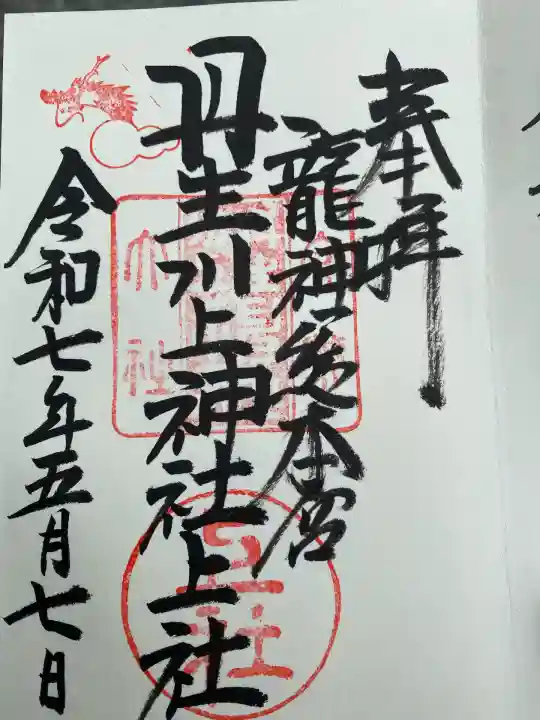 奉拝
龍神総本宮
丹生川上神社上社
令和七年五月七日
上社